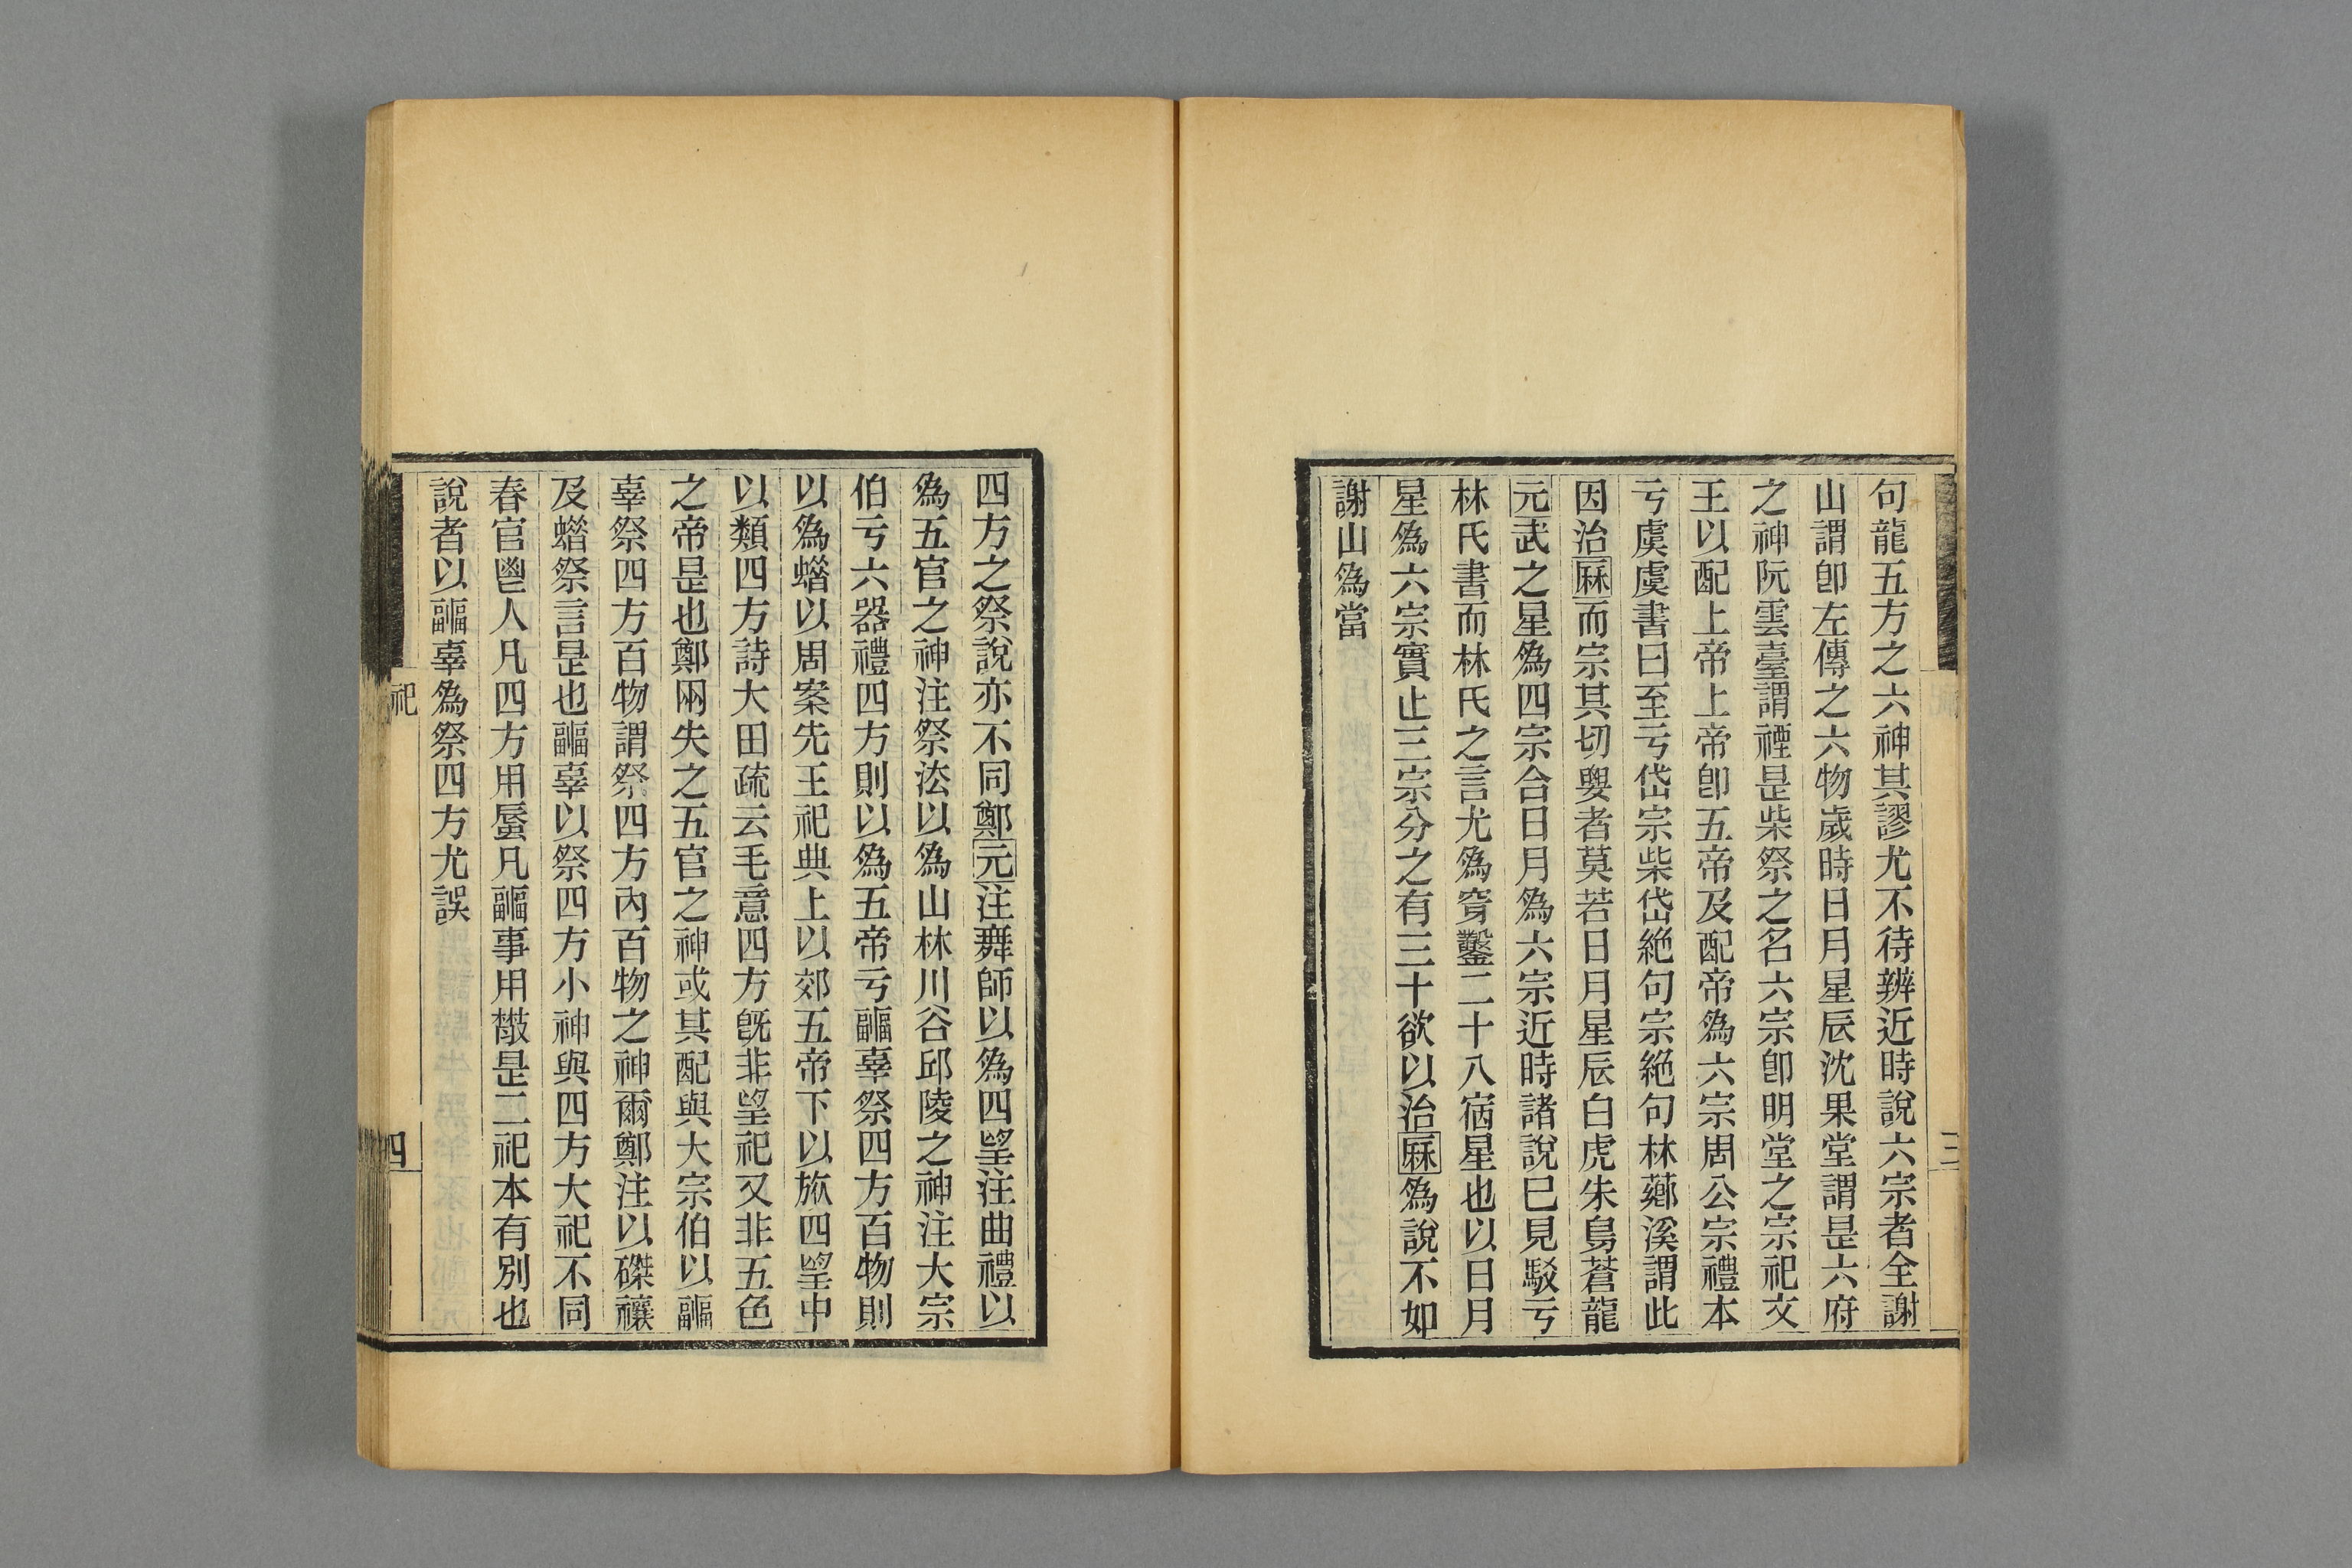 句龍五方之六神其謬尤不待辨近時說六宗者全謝
山謂卽左傳之六物歲時日月星辰沈果堂謂是六府
之神阮雲臺謂禋是柴祭之名六宗卽明堂之宗祀文
王以配上帝上帝卽五帝及配帝爲六宗周公宗禮本
亏虞虞書曰至亏岱宗柴岱絶句宗絶句林薌溪謂此
因治厤而宗其切要者莫若日月星辰白虎朱鳥蒼龍
元武之星爲四宗合日月爲六宗近時諸說已見駁亏
林氏書而林氏之言尤爲穿鑿二十八宿星也以日月
星爲六宗實止三宗分之有三十欲以治厤爲說不如
謝山爲當
三
四方之祭說亦不同鄭元注舞師以爲四望注曲禮以
爲五官之神注祭法以爲山林川谷邱陵之神注大宗
伯亏六器禮四方則以爲五帝亏疈辜祭四方百物則
以爲蜡以周案先王祀典上以郊五帝下以旅四望中
以類四方詩大田疏云毛意四方旣非望祀又非五色
之帝是也鄭兩失之五官之神或其配與大宗伯以疈
辜祭四方百物謂祭四方內百物之神爾鄭注以磔禳
及蜡祭言是也疈辜以祭四方小神與四方大祀不同
春官鬯人凡四方用蜃凡疈事用散是二祀本有別也
說者以疈辜爲祭四方尤誤
祀
四